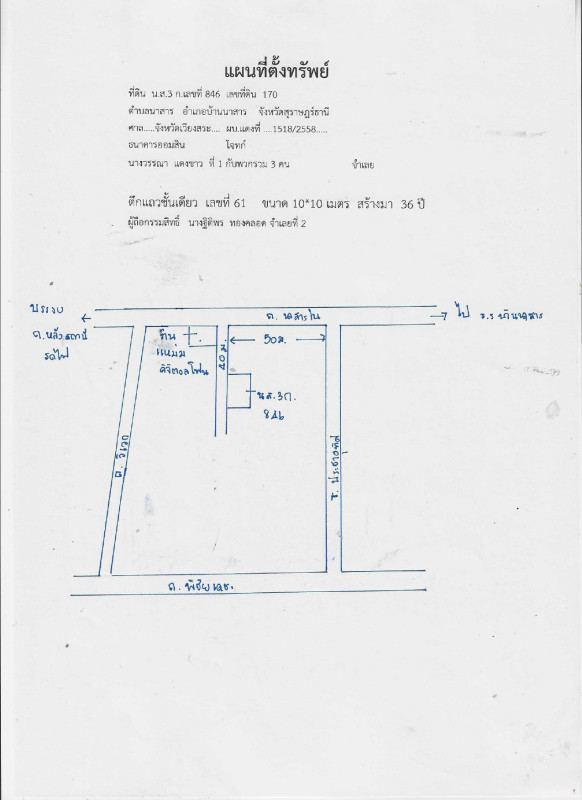 แผนที่ตั้งทรัพย์
ที่ดิน น.ส.3 ก.เลขที่ 846 เลขที่ดิน 170
ตำบลนาสาร อำเภอบ้านนาสาร จังหวัดสุราษฎร์ธานี
ศาล.....จังหวัดเวียงสระ.... ผบ.แดงที่ ....1518/2558.....
ธนาคารออมสิน โจทก์
นางวรรณา แดงขาว ที่ 1 กับพวกรวม 3 คน จำเลย
ตึกแถวชั้นเดียว เลขที่ 61 ขนาด 10*10 เมตร สร้างมา 36 ปี
ผู้ถือกรรมสิทธิ์ นางฐิติพร ทองคลอด จำเลยที่ 2
บรรจบ
ถ.หลังสถานี
รถไฟ
ถ. นาสารใน
ไป
ร้าน
แหม่ม
ดิจิตอลโฟน
40 ม.
50 ม.
น.ส. 3ก.
846
ถ. วิเวก
ซ. ประชาอุทิศ
ถ. พิชัยเดช.